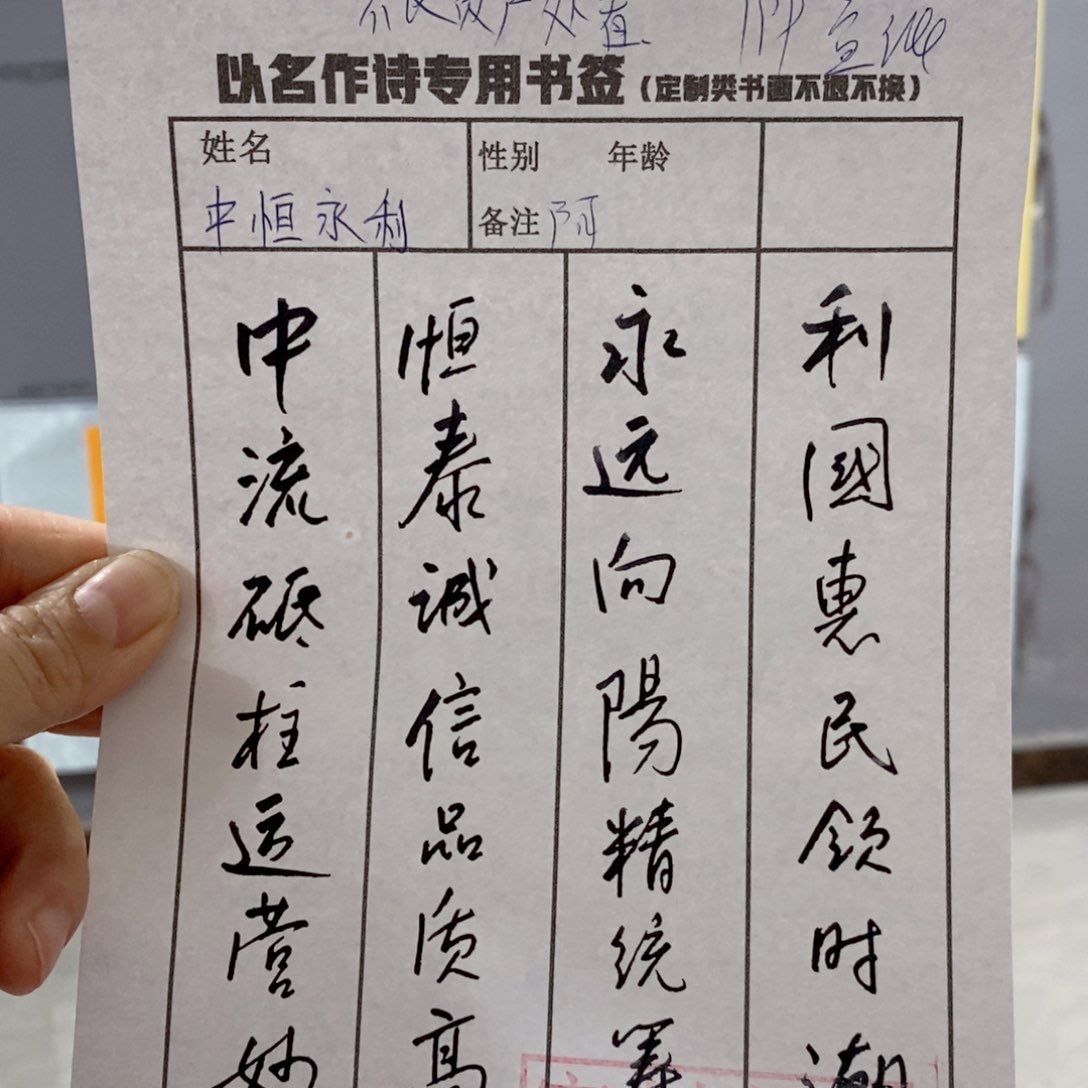 不良资产处置
以名作诗专用书签（定制类书画不退不换）
姓名
中恒永利
性别 年龄
备注 阿
中流砥柱运营妙
恒泰诚信品质高
永远向陽精统筹
利國惠民领时潮